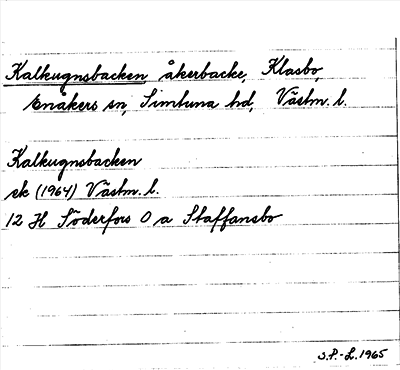 Kalkugnsbacken åkerbacke, Klasbo,
Enåkers sn, Simtuna hd, Västm. l.
Kalkugnsbacken
ek (1964) Västm. l.
12 H Söderfors 0 a Staffansbo
S.P.-L. 1965